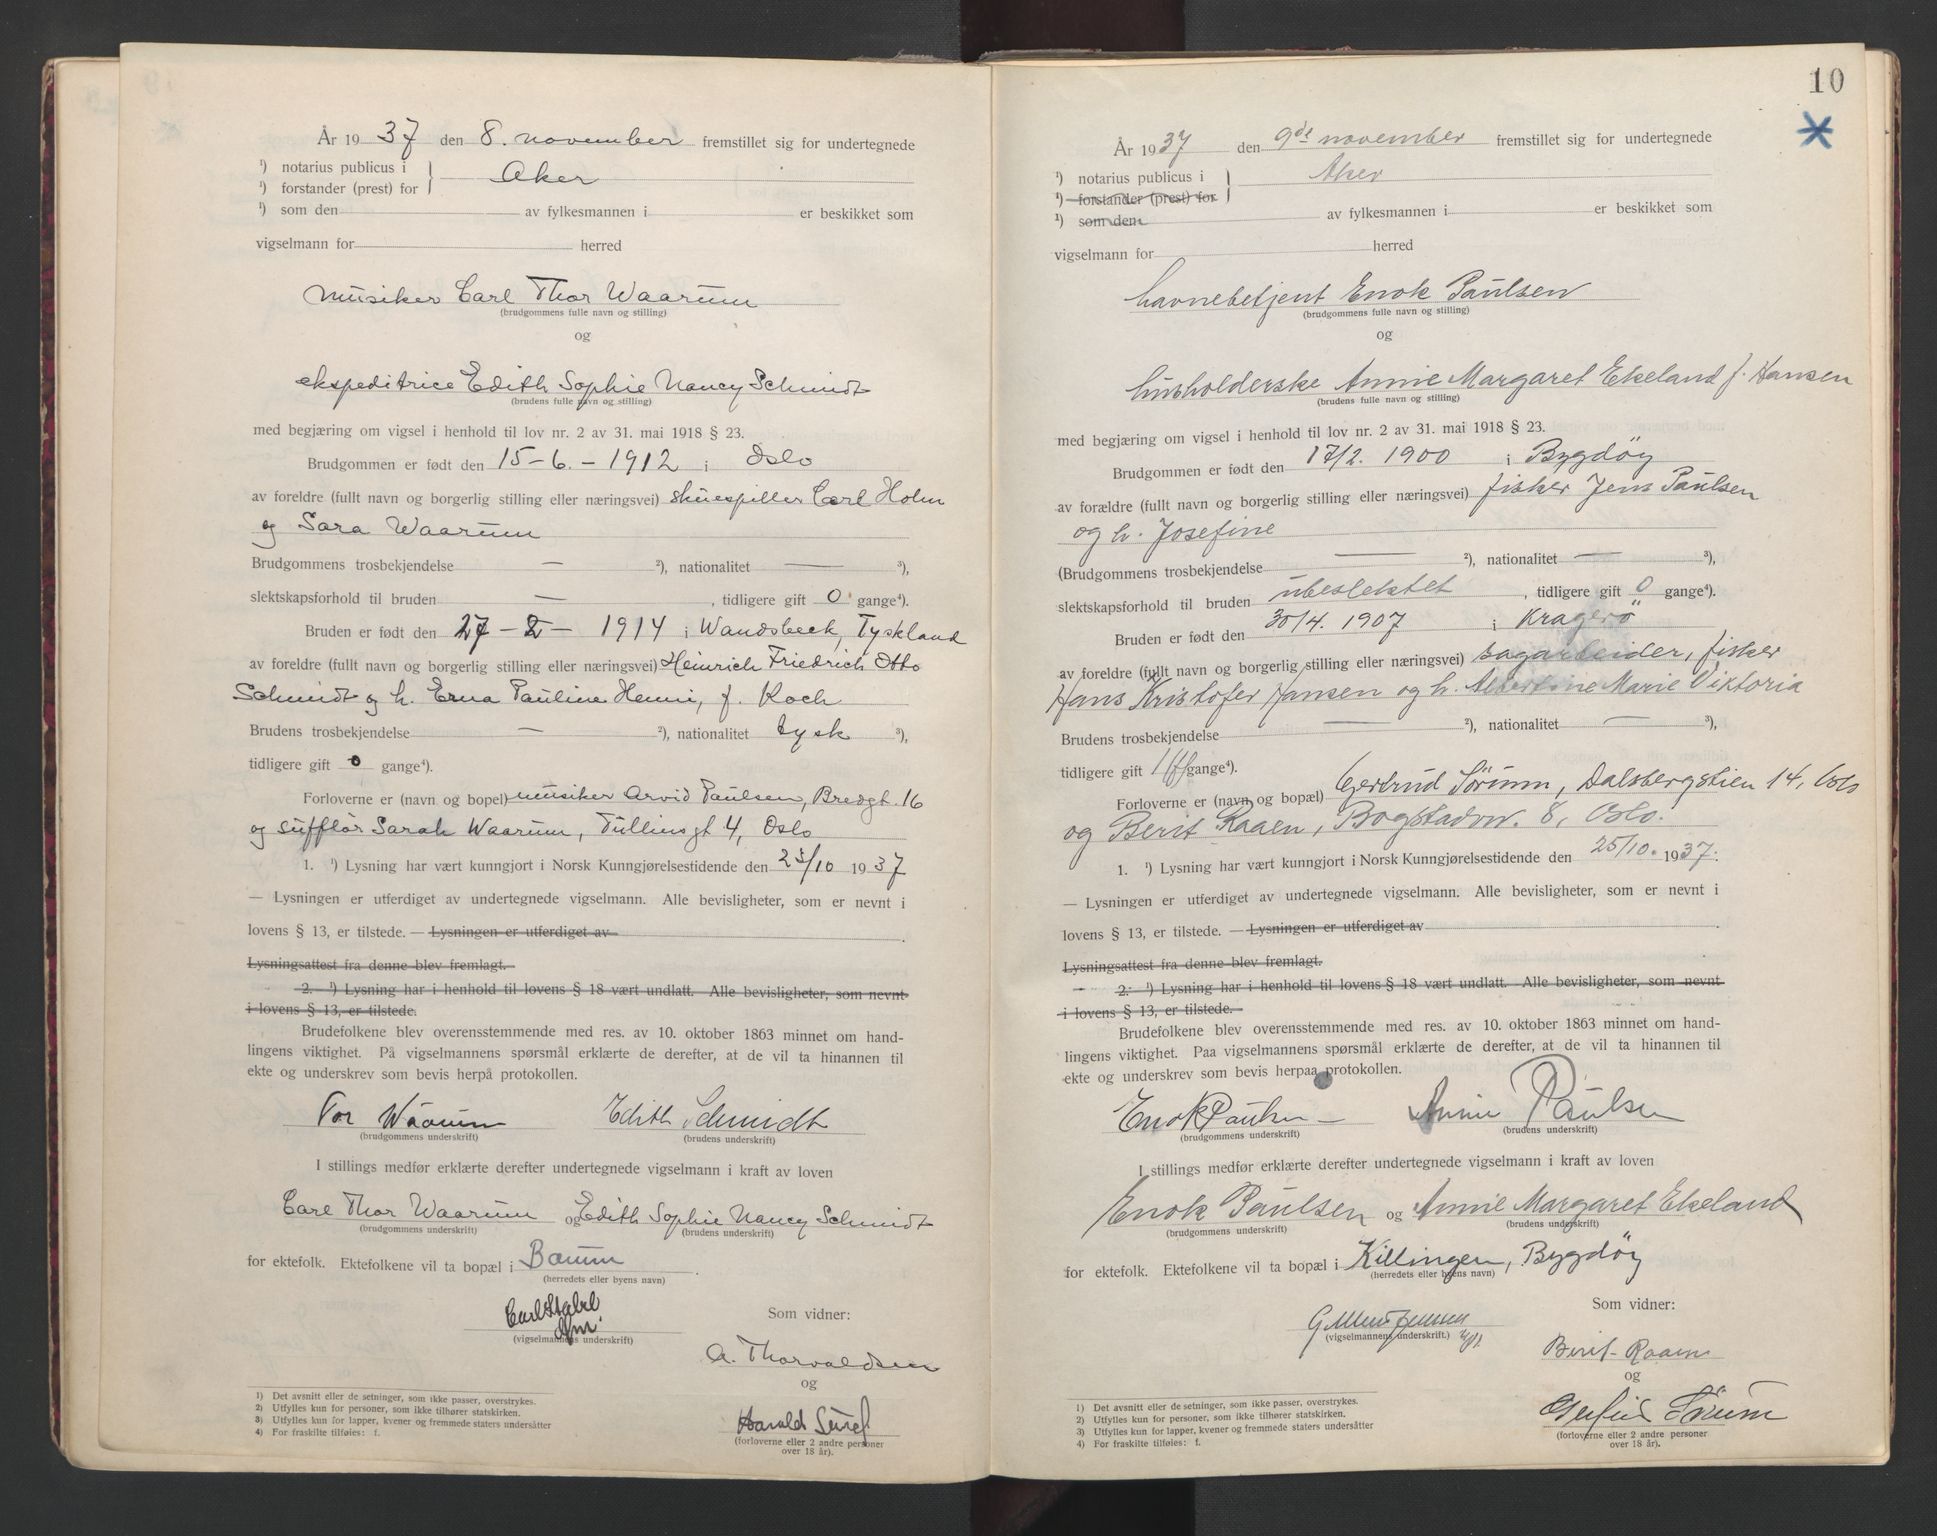 År 1937 den 8. november fremstillet sig for undertegnede
¹) notarius publicus i } Aker
¹) forstander (prest) for
¹) som den av fylkesmannen i er beskikket som
vigselmann for herred
musiker Carl Thor Waarum
(brudgommens fulle navn og stilling)
og
ekspeditrice Edith Sophie Nancy Schmidt
(brudens fulle navn og stilling)
med begjæring om vigsel i henhold til lov nr. 2 av 31. mai 1918 § 23.
Brudgommen er født den 15-6.-1912 i Oslo
av foreldre (fullt navn og borgerlig stilling eller næringsvei) skuespiller Carl Holm
og Sara Waarum
Brudgommens trosbekjendelse — ²), nationalitet — ³),
slektskapsforhold til bruden — , tidligere gift 0 gange⁴).
Bruden er født den 27-2-1914 i Wandsbeck, Tyskland
av foreldre (fullt navn og borgerlig stilling eller næringsvei) Heinrich Friedrich Otto
Schmidt og h. Erna Pauline Henni, f. Koch
Brudens trosbekjendelse — ²), nationalitet tysk ³),
tidligere gift 0 gange⁴).
Forloverne er (navn og bopel) musiker Arvid Paulsen, Bredgt. 16
og sufflør Sarah Waarum, Tullinsgt 4, Oslo
1. ¹) Lysning har vært kunngjort i Norsk Kunngjørelsestidende den 23/10 1937
— Lysningen er utferdiget av undertegnede vigselmann. Alle bevisligheter, som er nevnt i
lovens § 13, er tilstede. — Lysningen er utferdiget av .
Lysningsattest fra denne blev fremlagt.
2. ¹) Lysning har i henhold til lovens § 18 vært undlatt. Alle bevisligheter, som nevnt
i lovens § 13, er tilstede.
Brudefolkene blev overensstemmende med res. av 10. oktober 1863 minnet om hand-
lingens viktighet. På vigselmannens spørsmål erklærte de derefter, at de vil ta hinannen til
ekte og underskrev som bevis herpå protokollen.
Tor Waarum Edith Schmidt
(brudgommens underskrift) (brudens underskrift)
I stillings medfør erklærte derefter undertegnede vigselmann i kraft av loven
Carl Thor Waarum og Edith Sophie Nancy Schmidt
(brudgommens underskrift) (brudens underskrift)
for ektefolk. Ektefolkene vil ta bopæl i Bærum
(herredets eller byens navn)
Carl Stabel
(vigselmannens underskrift)
Som vidner:
A. Thorvaldsen
og
Harald
(forloverne eller 2 andre personer
over 18 år).
1) Det avsnitt eller de setninger, som ikke passer, overstrykes.
2) Utfylles kun for personer, som ikke tilhører statskirken.
3) Utfylles kun for lapper, kvener og fremmede staters undersåtter
4) For fraskilte tilføies: f.
10
År 1937 den 9de november fremstillet sig for undertegnede
¹) notarius publicus i } Aker
¹) forstander (prest) for
¹) som den av fylkesmannen i er beskikket som
vigselmann for herred
havnebetjent Enok Paulsen
(brudgommens fulle navn og stilling)
og
husholderske Annie Margaret Ekeland f. Hansen
(brudens fulle navn og stilling)
med begjæring om vigsel i henhold til lov nr. 2 av 31. mai 1918 § 23.
Brudgommen er født den 17/2. 1900 i Bygdöy
av forældre (fullt navn og borgerlig stilling eller næringsvei) fisker Jens Paulsen
og h. Josefine
(Brudgommens trosbekjendelse — ²), nationalitet — ³),
slektskapsforhold til bruden ubeslektet , tidligere gift 0 gange⁴).
Bruden er født den 30/4. 1907 i Kragerö
av foreldre (fullt navn og borgerlig stilling eller næringsvei) sagarbeider, fisker
Hans Kristofer Hansen og h. Albertine Marie Viktoria
Brudens trosbekjendelse — ²), nationalitet — ³),
tidligere gift 1 gange⁴).
Forloverne er (navn og bopæl) Gertrud Sörum, Dalsbergstien 14, Oslo
og Berit Raaen, Bogstadvn. 8, Oslo.
1. ¹) Lysning har vært kunngjort i Norsk Kunngjørelsestidende den 25/10. 1937.
— Lysningen er utferdiget av undertegnede vigselmann. Alle bevisligheter, som er nevnt i
lovens § 13, er tilstede. — Lysningen er utferdiget av .
Lysningsattest fra denne blev fremlagt.
2. ¹) Lysning har i henhold til lovens § 18 vært undlatt. Alle bevisligheter, som nevnt
i lovens § 13, er tilstede.
Brudefolkene blev overensstemmende med res. av 10. oktober 1863 minnet om hand-
lingens viktighet. Paa vigselmannens spørsmål erklærte de derefter, at de vil ta hinannen til
ekte og underskrev som bevis herpaa protokollen.
Enok Paulsen Annie Paulsen
(brudgommens underskrift) (brudens underskrift)
I stillings medfør erklærte derefter undertegnede vigselmann i kraft av loven
Enok Paulsen og Annie Margaret Ekeland
(brudgommens underskrift) (brudens underskrift)
for ektefolk. Ektefolkene vil ta bopæl i Killingen, Bygdöy
(herredets eller byens navn)
(vigselmannens underskrift.)
Som vidner:
Berit Raaen
og
Gertrud Sörum
(forloverne eller 2 andre personer
over 18 år).
1) Det avsnitt eller de setninger, som ikke passer, overstrykes.
2) Utfylles kun for personer, som ikke tilhører statskirken.
3) Utfylles kun for lapper, kvener og fremmede staters undersåtter
4) For fraskilte tilføies: f.